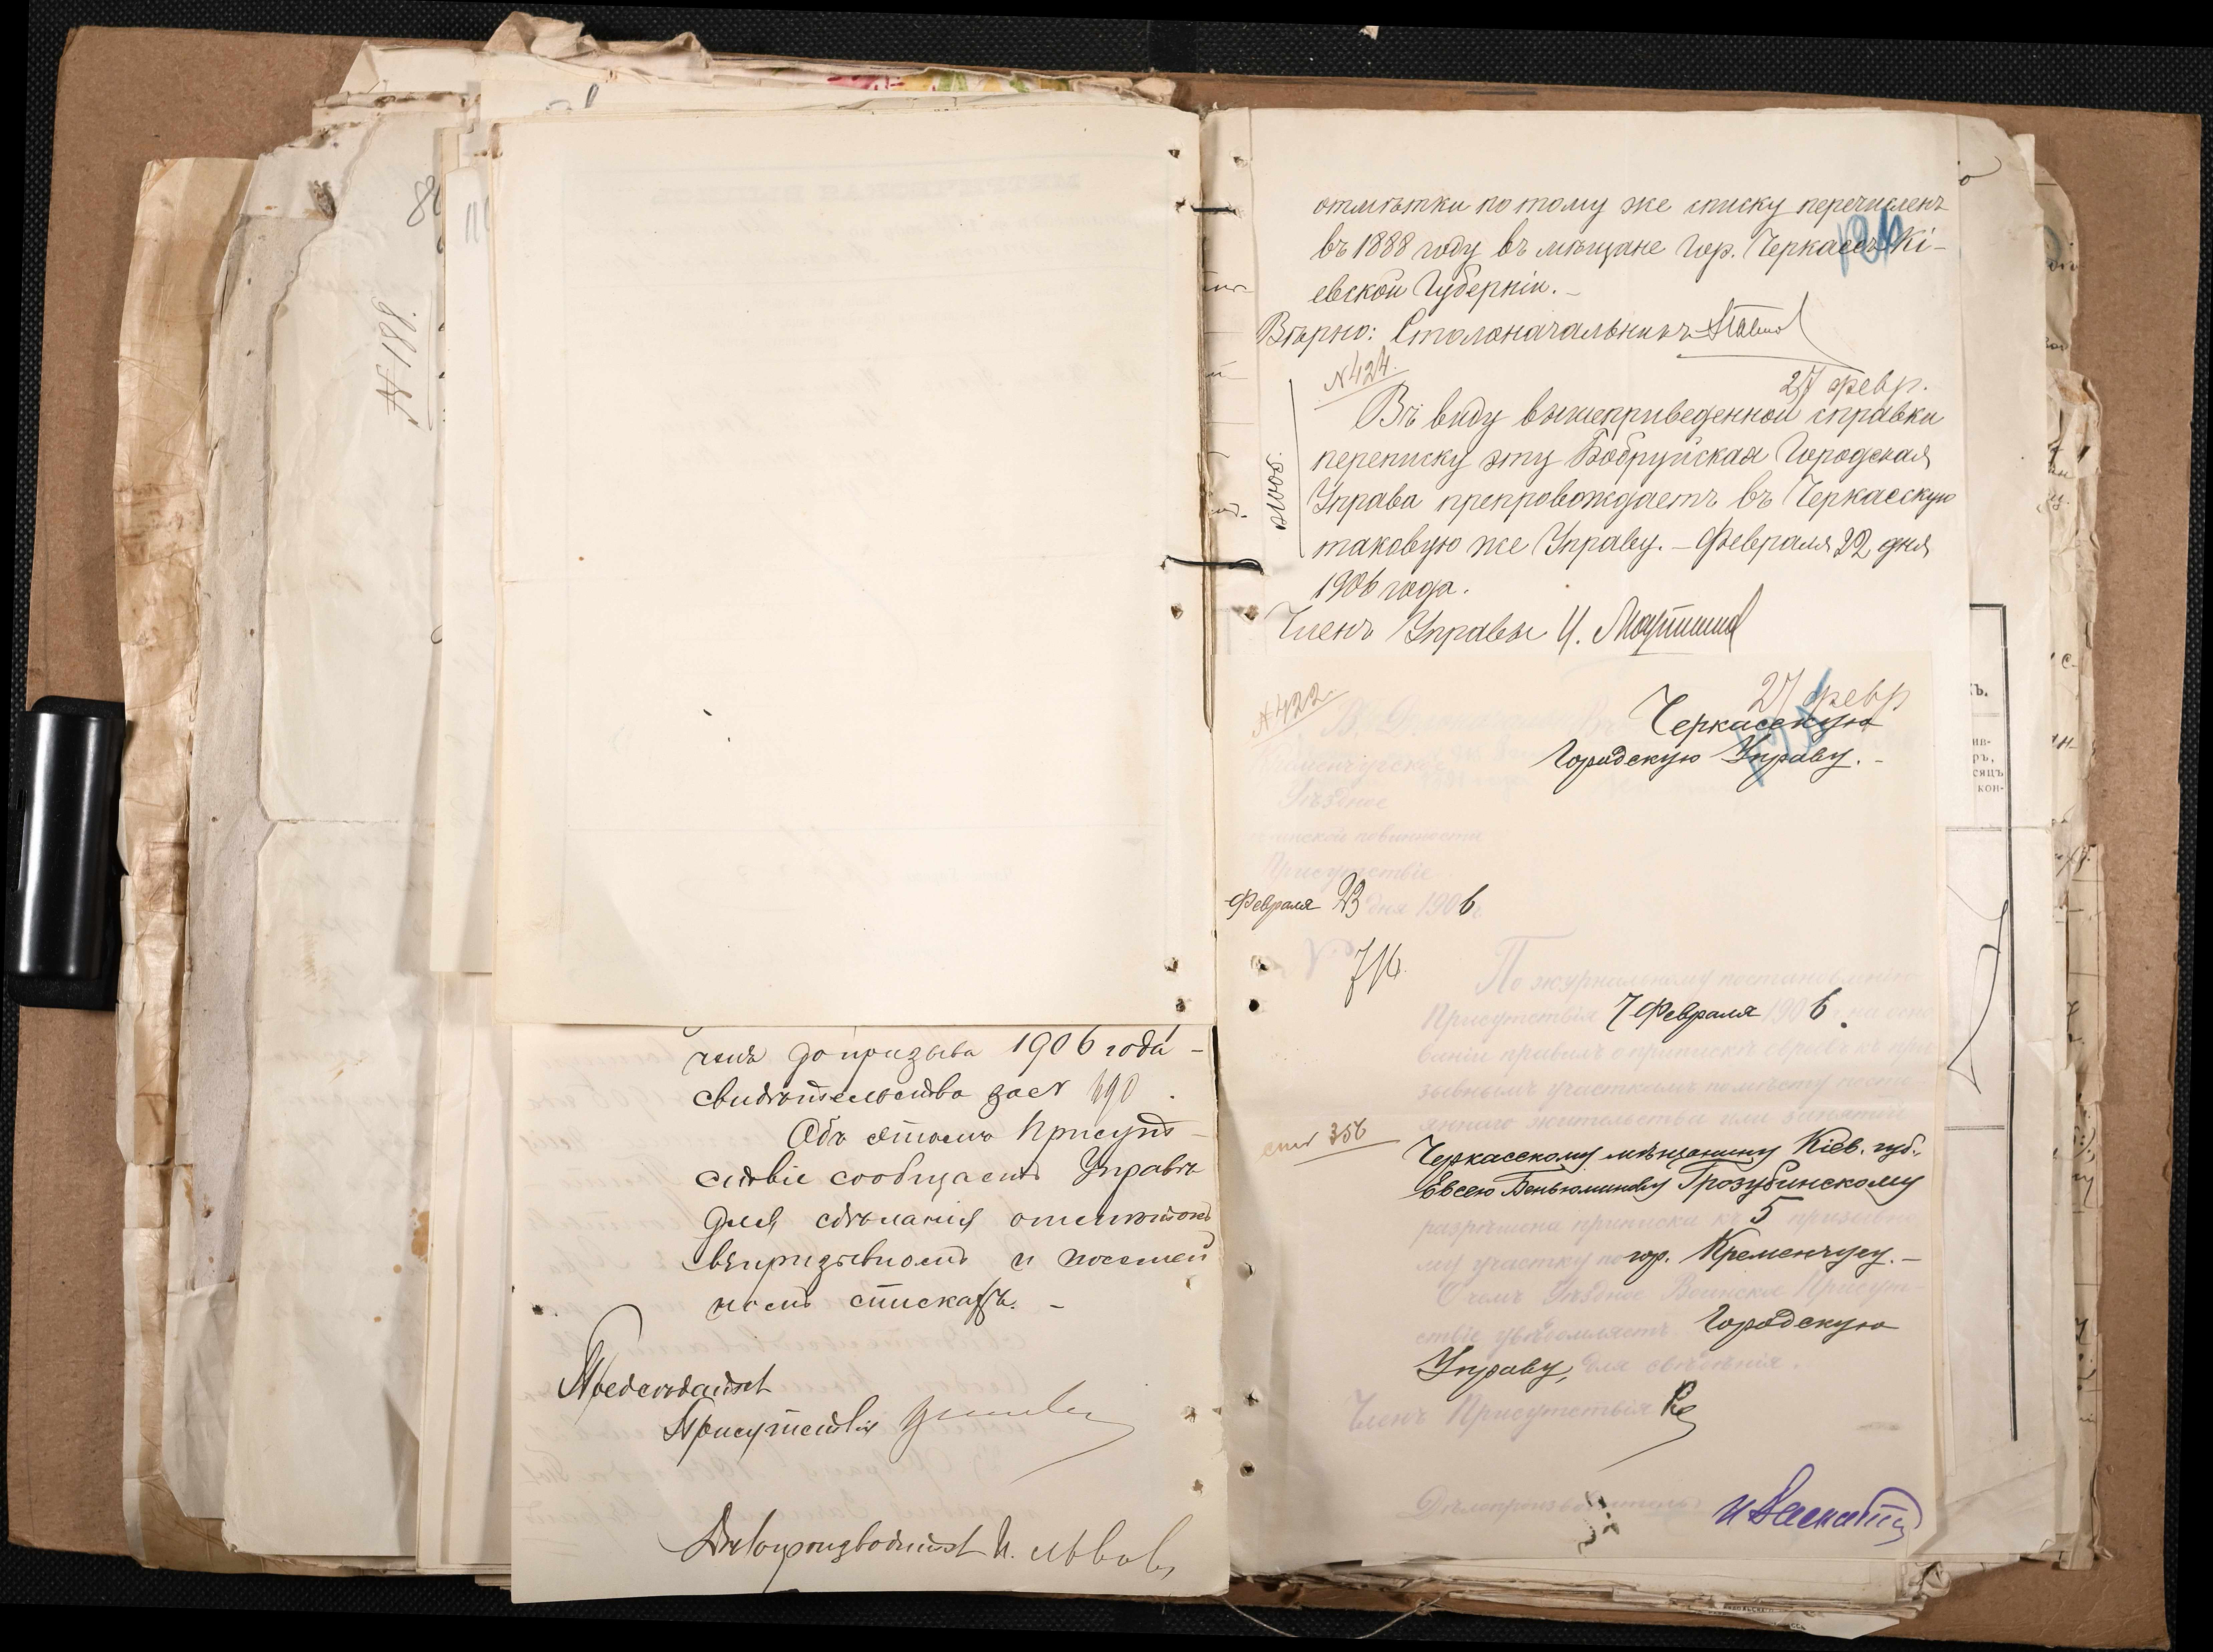 N 188.
ченъ до призыва 1906 года –
свидѣтельство за N 490.
Объ этомъ Присут-
ствіе сообщаетъ Управѣ
для сдѣланія отмѣтокъ
въ призывномъ и посемей
номъ спискахъ. –
Предсѣдатель
Присутствія
Дѣлопроизводитель И. Львовъ
отмѣтки по тому же списку перечисленъ
въ 1888 году въ мѣщане гор. Черкассъ Кі-
евской Губерніи. –
Вѣрно: Столоначальникъ
N 424.
27 февр.
Въ виду вышеприведенной справки
переписку эту Бобруйская Городская
Управа препровождаетъ въ Черкасскую
таковую же Управу. – Февраля 22 дня
1906 года.
Членъ Управы
N 422.
27 февр
Въ Черкасскую
Кременчугское
Городскую Управу. –
Уѣздное
воинской повинности
Присутствіе
Февраля 23 дня 1906 г.
N 716.
По журнальному постановленію
Присутствія 7 Февраля 1906, на осно
ваніи правилъ о припискѣ евреевъ къ при
зывнымъ участкамъ по мѣсту посто-
яннаго жительства или занятій
358
Черкасскому мѣщанину Кіев. губ.,
Евсею Беньюминову Грозубинскому
разрѣшена приписка къ 5 призывно-
му участку по гор. Кременчугу. –
О чемъ Уѣздное Воинское Присут-
ствіе увѣдомляетъ Городскую
Управу, для свѣдѣнія.
Членъ Присутствія
Дѣлопроизводитель